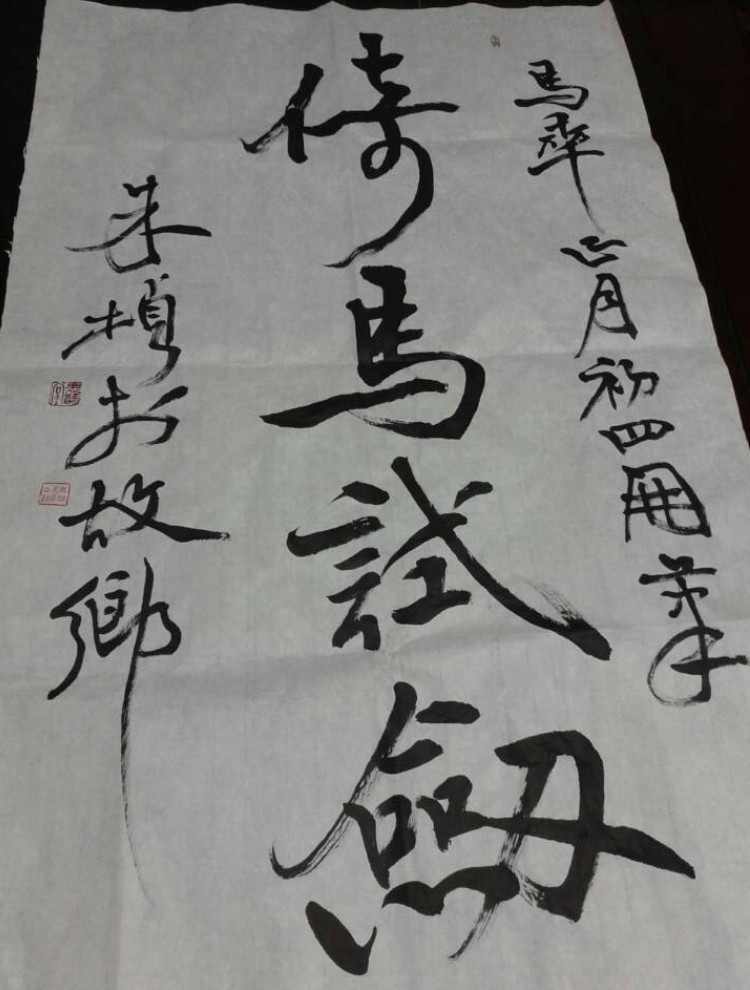 馬年正月初四開筆
倚馬試劍
朱楨於故鄉